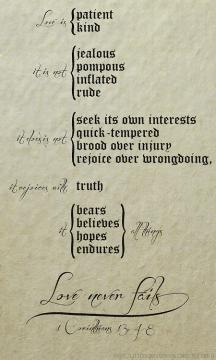 Love is { patient
kind
it is not { jealous
pompous
inflated
rude
it does not { seek its own interests
quick-tempered
brood over injury
rejoice over wrongdoing,
it rejoices with truth
it { bears
believes
hopes
endures } all things
Love never fails
1 Corinthians 13:4-8